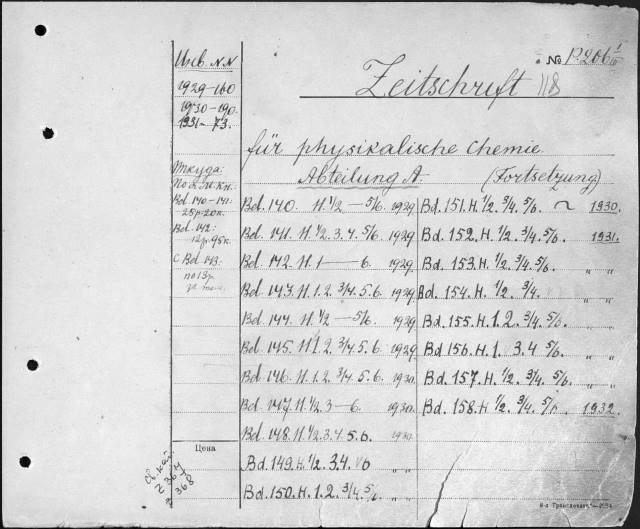 Инв. NN
1929-160
1930-190.
1931-73.
Откуда:
Bd 140-141:
25р.20к.
Bd. 142:
12р.95к.
с Bd 143.
по 13р.
Цена
№ P.206
Zeitschrift 118
für physikalische Chemie
Abteilung A. (Fortsetzung)
Bd. 140. H.1/2 — 5/6. 1929
Bd. 141. H.1/2. 3. 4. 5/6. 1929
Bd. 142. H. 1 — 6. 1929
Bd. 143. H. 1. 2. 3/4. 5. 6. 1929
Bd. 144. H. 1/2 — 5/6. 1929
Bd. 145. H. 1. 2. 3/4. 5. 6. 1929
Bd. 146. H. 1. 2. 3/4. 5. 6. 1930
Bd. 147. H. 1/2. 3 — 6. 1930
Bd. 148. H. 1/2. 3. 4. 5. 6. 1930
Bd. 149. H. 1/2. 3. 4. 5/6 „ „
Bd. 150. H. 1. 2. 3/4. 5/6 „ „
Bd. 151. H. 1/2. 3/4. 5/6. ~ 1930.
Bd. 152. H. 1/2. 3/4. 5/6. 1931.
Bd. 153. H. 1/2. 3/4. 5/6. „ „
Bd. 154. H. 1/2. 3/4. „ „
Bd. 155. H. 1. 2. 3/4. 5/6. „ „
Bd. 156. H. 1. 3. 4 5/6. „ „
Bd. 157. H. 1/2. 3/4. 5/6. „ „
Bd. 158. H. 1/2. 3/4. 5/6. 1932